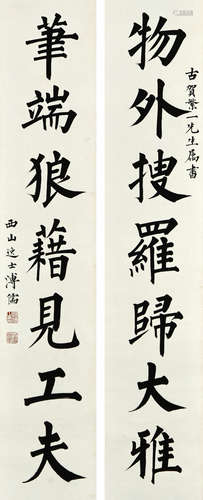 物外搜羅歸大雅
古賀繁一先生屬書
筆端狼藉見工夫
西山逸士溥儒